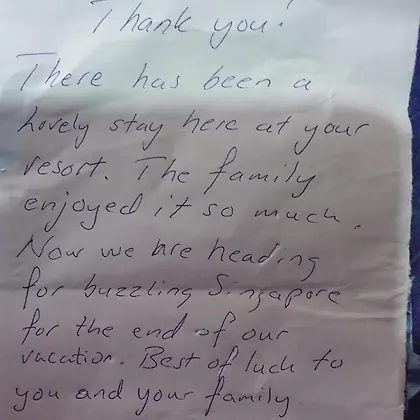 Thank you!
There has been a
lovely stay here at your
resort. The family
enjoyed it so much.
Now we are heading
for buzzling Singapore
for the end of our
vacation. Best of luck to
you and your family